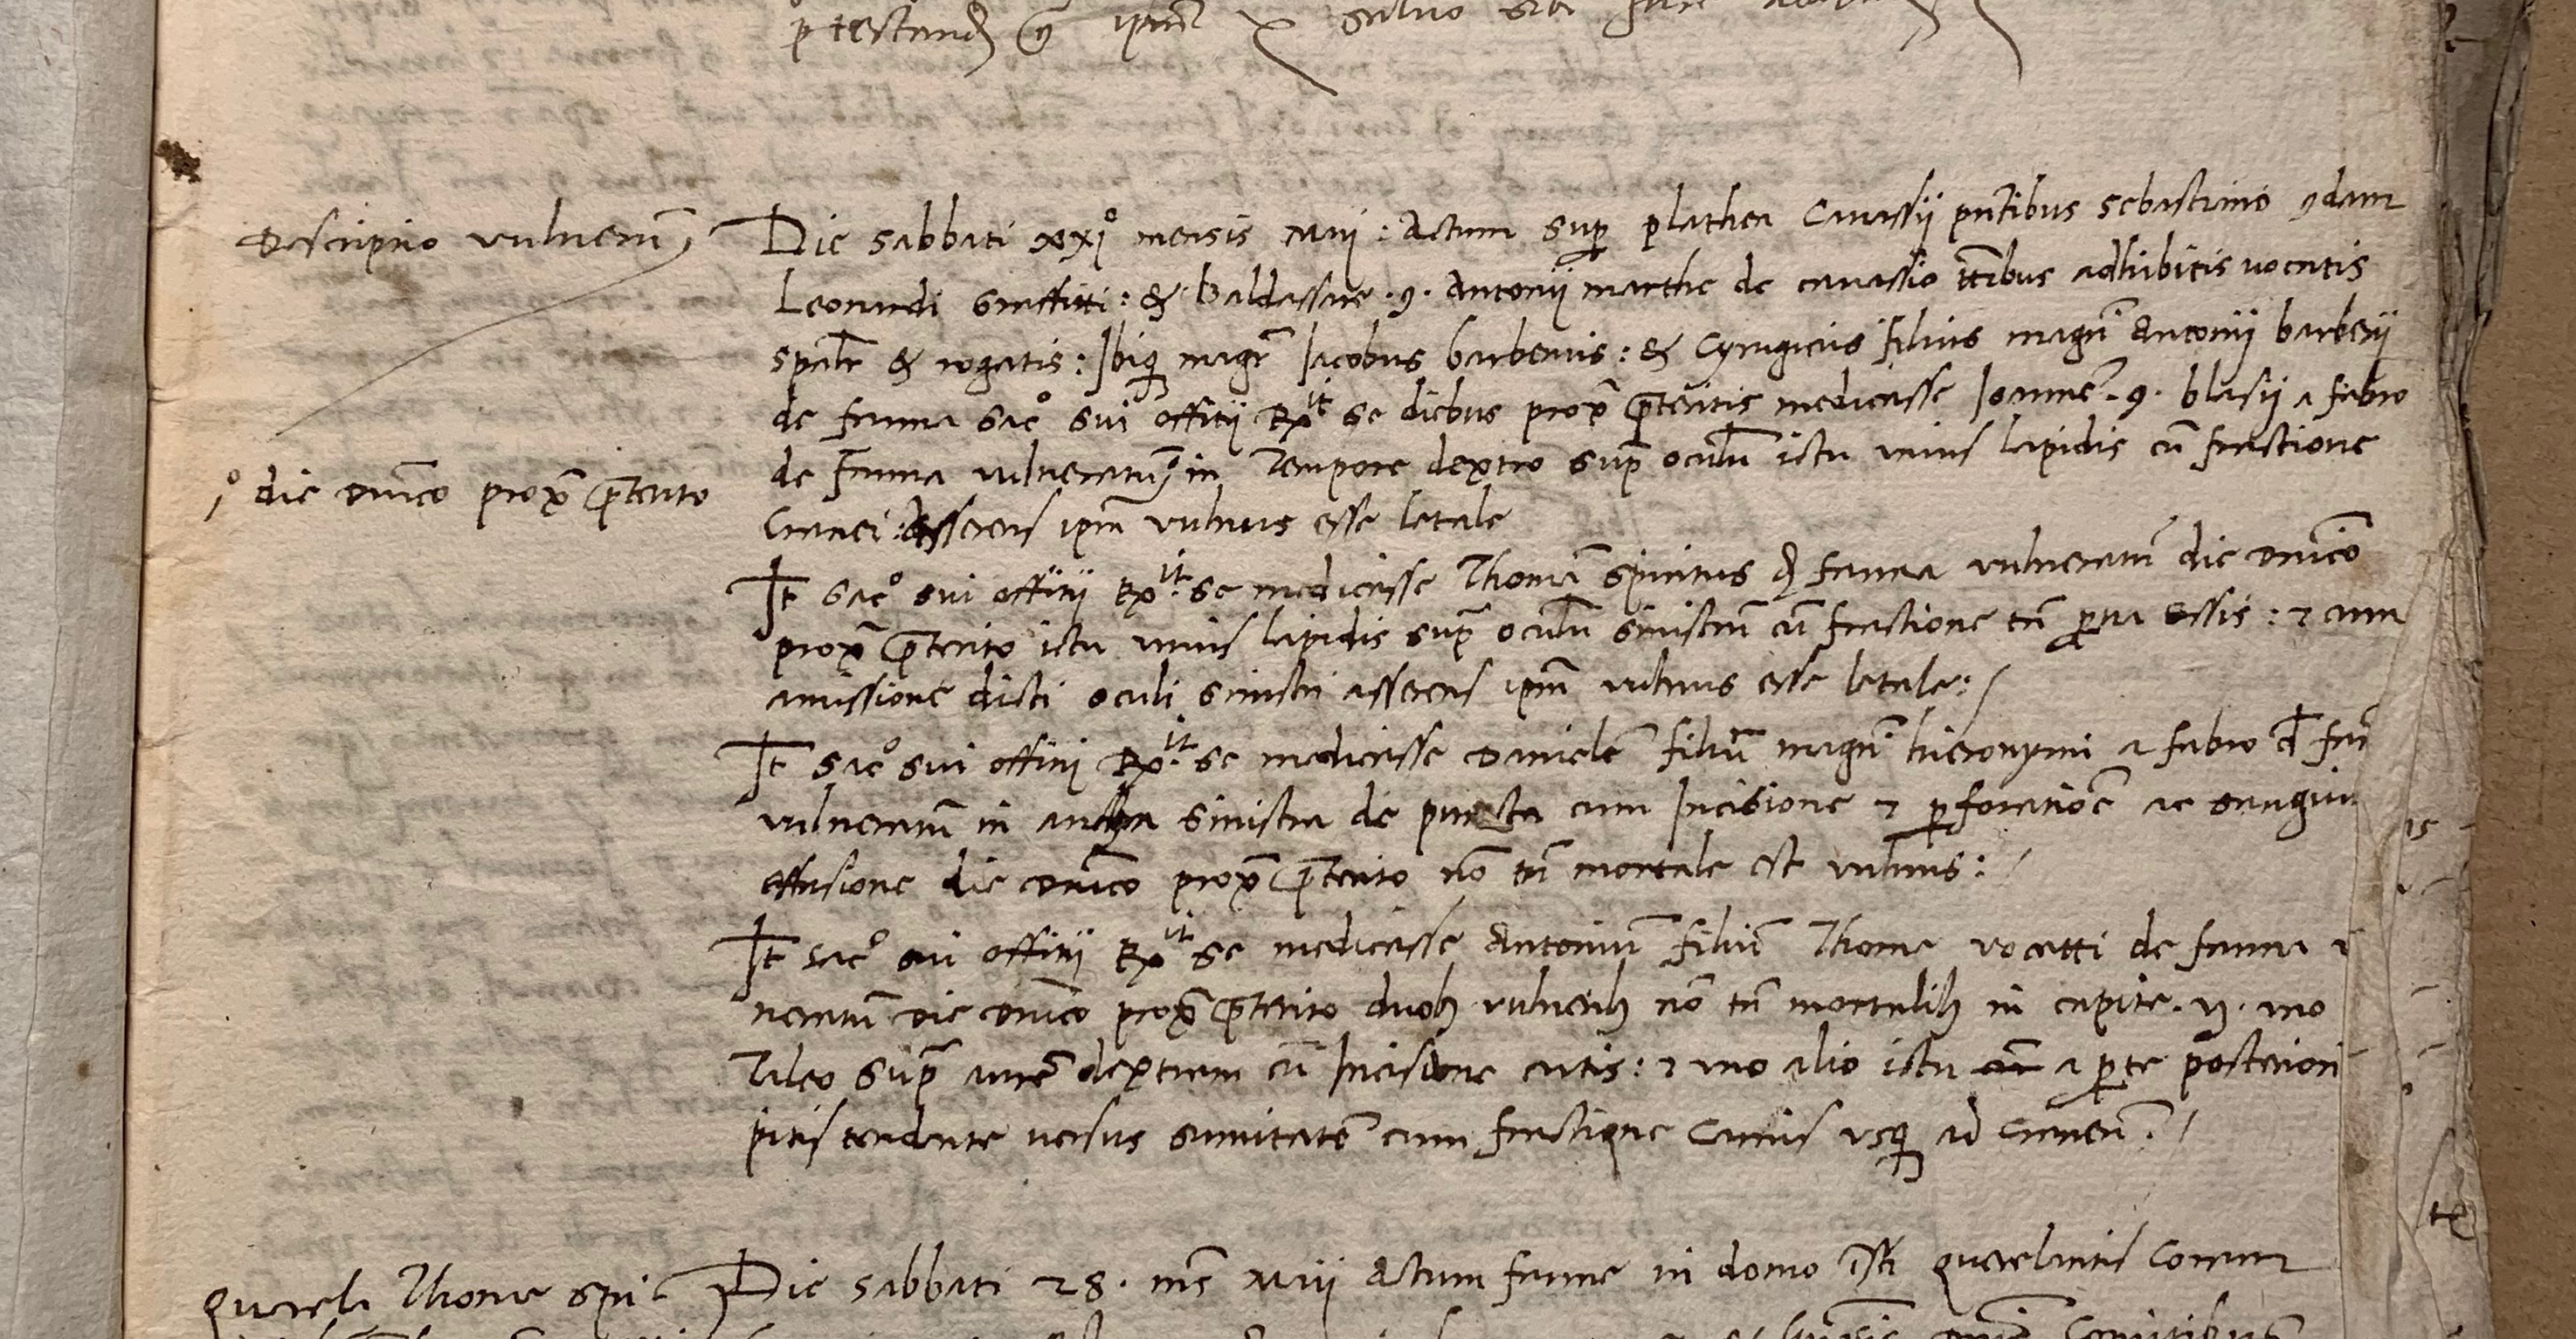 ptestand
Descriptio vulnerum
Die sabbati xxj° mensis Maij : Actum sup plathea Cavassij pntibus sebastiano qdam
Leonardi Graffitti : & Baldassare .q. Antonij marthe de cavassio ttibus adhibitis vocatis
spalr & rogatis : Ibiq magr Iacobus barberius : & Cyrugicus filius magri Antonij barberij
de fauna sacr° sui offitij Rxit se diebus prox pteritis medicasse Ioanne .q. blasij a fabro
de Fauna vulneratum in Tempore dextro supr oculum ictu unius lapidis cu fractione
Cranei : Asserens ipm vulnus esse letale
i° die dnico prox pterito
It sacr° sui offitij Rxit se medicasse Thoma spiritus d fauna vulneratum die dnico
prox pterito ictu unius lapidis supr oculum sinistrum cu fractione tn parva ossis : & cum
amissione dicti oculi sinistri asserens ipm vulnus esse letale :/
It sacr° sui offitij Rxit se medicasse Daniele filiu magri hieronymi a fabro d fau
vulneratum in sinistra de puncta cum Incisione & pforatioe ac sanguin
effusione die dnico prox pterito no tn mortale est vulnus : /
It sacr° sui offitij Rxit se medicasse Antonium filiu Thome vocetti de fauna v
neratum die dnico prox pterito duob vulnerib no tn mortalib in capite . vz . uno
Taleo supr aure dextram cu Incisione cutis : & uno alio ictu a pte posteriori
pitis tendente versus sumitate cum fractione Carnis usq ad craneu . /
Querela Thome spi
Die sabbati 28 . mes Maij Actum faune in domo isti querelantis Coram